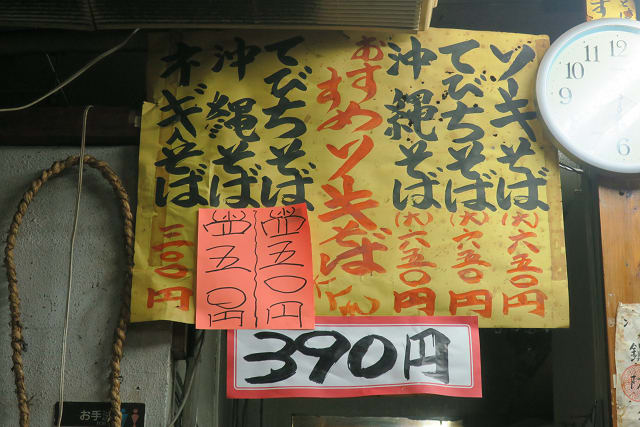 ソーキそば(大)六五〇円
てびちそば(大)六五〇円
沖縄そば(大)六五〇円
おすすめソーキそば
てびちそば
沖縄そば
ネギそば 三〇〇円
四五〇円
四五〇円
390円
お手
12
11
10
9
8
7
6
円